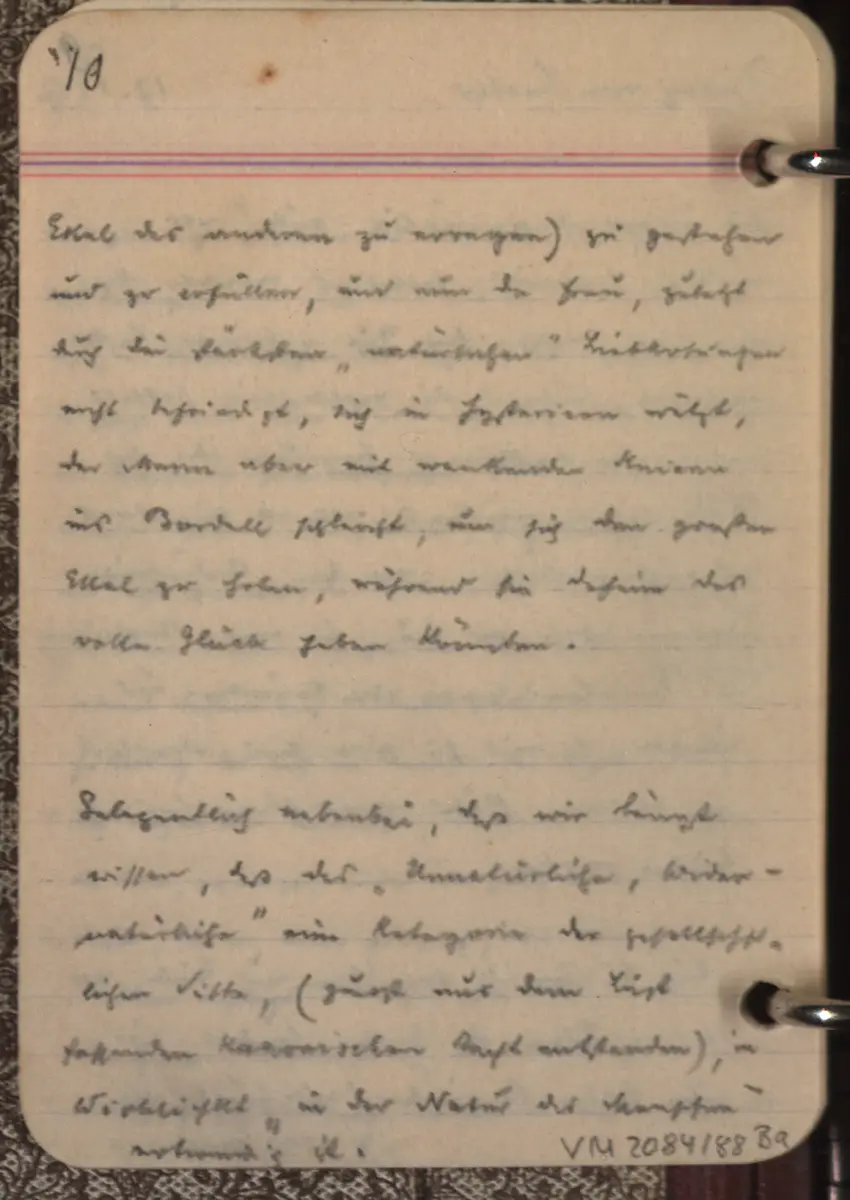 10
Ekel des anderen zu erregen) zu gestehen
und zu erfüllen, und nun die Frau, zuletzt
durch die stärksten „natürlichen" Liebkosungen
nicht befriedigt, sich in Hysterieen wälzt,
der Mann aber mit wankenden Knieen
ins Bordell schleicht, um sich den großen
Ekel zu holen, während sie daheim das
volle Glück haben könnten.
Gelegentlich nebenbei, daß wir längst
wissen, daß das „Unnatürliche, Wider-
natürliche" eine Kategorie der gesellschaft-
lichen Sitte, (zuerst aus dem Lust
hassenden kanonischen Recht entstanden), in
Wirklichkeit „in der Natur des Menschen"
notwendig ist.
VM 2084/88 Ba